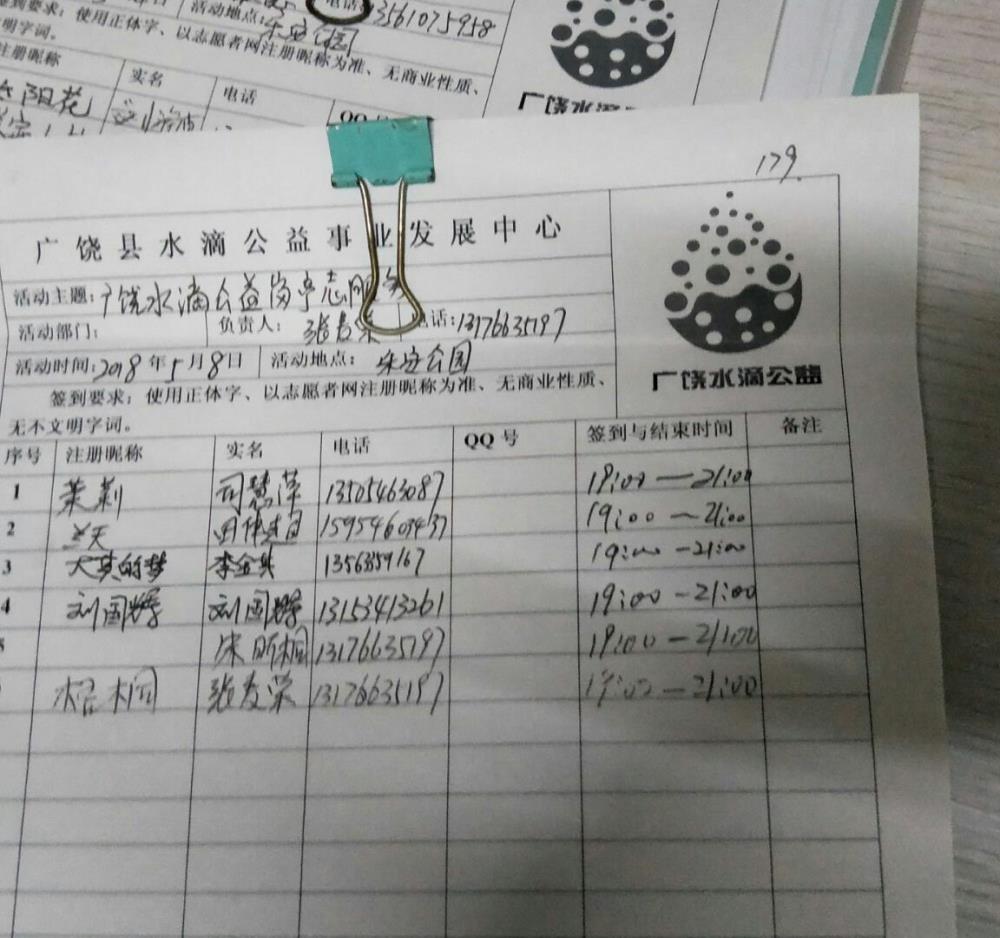 电话:
活动地点:乐安公园
签到要求：使用正体字、以志愿者网注册昵称为准、无商业性质、
明字词。
注册昵称 实名 电话
广饶水滴
179.
广饶县水滴公益事业发展中心
活动主题:广饶水滴公益岗亭志服务
活动部门: 负责人: 张友荣 电话:13176635197
活动时间:2018年5月8日 活动地点: 乐安公园
签到要求：使用正体字、以志愿者网注册昵称为准、无商业性质、
无不文明字词。
广饶水滴公益
序号 注册昵称 实名 电话 QQ号 签到与结束时间 备注
1 茉莉 司慧萍 13505463087 19:00—21:00
2 兰天 15954603437 19:00—21:00
3 天真的梦 李金其 1356359167 19:00—21:00
4 刘国 刘国 13153413261 19:00—21:00
宋 桐 13176635197 19:00—21:00
梧桐 张友荣 13176635197 19:00—21:00